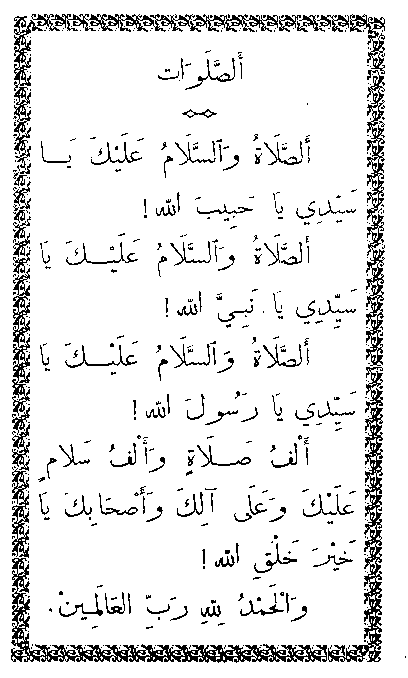 أَلصَّلَوَات
أَلصَّلَاةُ وَالسَّلَامُ عَلَيْكَ يَـا
سَيِّدِي يَا حَبِيبَ اللهِ!
أَلصَّلَاةُ وَالسَّلَامُ عَلَيْـكَ يَا
سَيِّدِي يَا نَبِيَّ اللهِ!
أَلصَّلَاةُ وَالسَّلَامُ عَلَيْـكَ يَا
سَيِّدِي يَا رَسُولَ اللهِ!
أَلْفُ صَـلَاةٍ وَأَلْفُ سَلَامٍ
عَلَيْكَ وَعَلَى آلِكَ وَأَصْحَابِكَ يَا
خَيْرَ خَلْقِ اللهِ!
وَالْحَمْدُ لِلهِ رَبِّ الْعَالَمِـينْ.